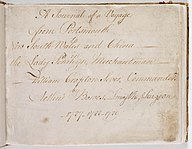 A Journal of a Voyage
from Portsmouth
New South Wales and China
the Lady Penrhyn, Merchantman
William Cropton Sever, Commander
Arthur Bowes, Smyth, Surgeon
1787. 1788. 1789